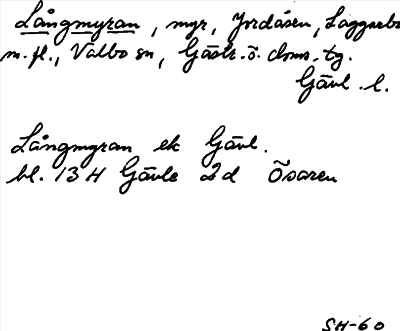 Långmyran, myr, Jordåsen, Laggarbo
m.fl., Valbo sn, Gästr. ö. doms. tg.
Gävl. l.
Långmyran ek Gävl.
bl. 13 H Gävle 2d Ösaren
SH-60